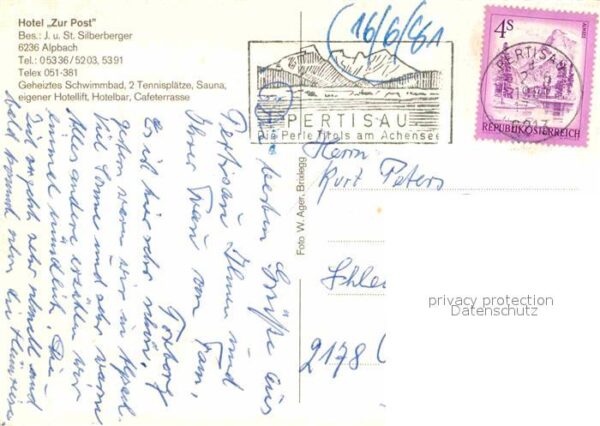 Hotel „Zur Post"
Bes.: J. u. St. Silberberger
6236 Alpbach
Tel.: 0 53 36 / 52 03, 53 91
Telex 051-381
Geheiztes Schwimmbad, 2 Tennisplätze, Sauna,
eigener Hotellift, Hotelbar, Cafeterrasse
(16/6/81)
4S
REPUBLIK ÖSTERREICH
PERTISAU
6213
PERTISAU
Die Perle Tirols am Achensee
Foto W. Ager, Brixlegg
Herrn
Kurt Peters
2178
privacy protection
Datenschutz
besten Grüße aus
Pertisau Ihnen und
Ihrer Frau von
Fam.
Es ist hier sehr schön,
gestern waren wir in
viel Sonne und sehr warm
Alles andere erzählen wir
einmal mündlich. Die
Zeit vergeht sehr schnell und
bald kommt schon die Heimreise